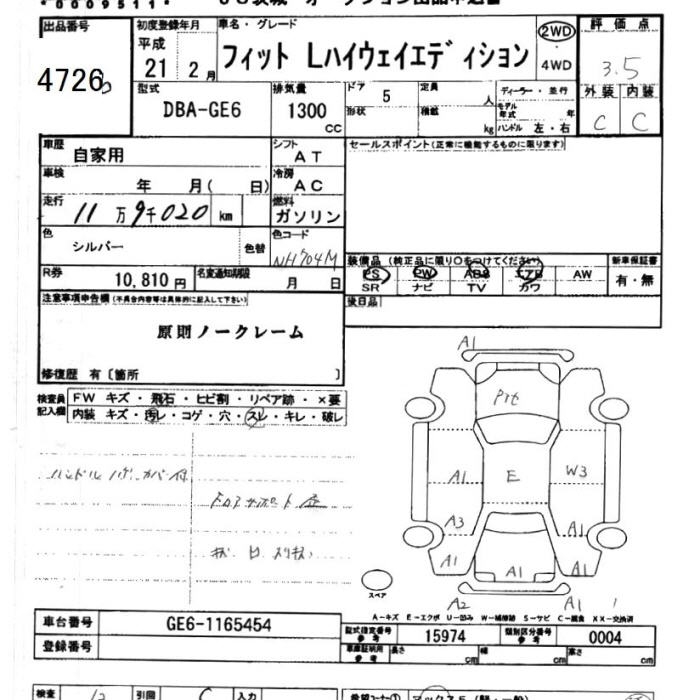 0009511
出品番号
4726
初度登録年月
平成
21 2 月
車名・グレード
フィット Lハイウェイエディション
2WD
4WD
評価点
3.5
外装 内装
C C
型式
DBA-GE6
排気量
1300
CC
ドア 5
形状
定員
人
積載
kg
ディーラー・並行
モデル年式 年
ハンドル 左・右
車歴
自家用
シフト
AT
車検
年 月( 日)
冷房
AC
走行
11 万 9千020 km
燃料
ガソリン
色
シルバー
色替
色コード
NH704M
R券
10,810 円
名変通知期限
月 日
セールスポイント(正常に機能するものに限ります)
装備品 (純正品に限り○をつけてください)
新車保証書
PS PW ABS エアB AW
SR ナビ TV カワ
有・無
後日品
注意事項申告欄 (不具合内容等は具体的に記入して下さい)
原則ノークレーム
修復歴 有〔箇所 〕
検査員記入欄
FW キズ・飛石・ヒビ割・リペア跡・×要
内装 キズ・汚レ・コゲ・穴・スレ・キレ・破レ
A1
E
A1
W3
A3
A1
A1
A1
A1
A2
A1
スペア
A-キズ E-エクボ U-凹み W-補修跡 S-サビ C-腐食 XX-交換済
車台番号
GE6-1165454
登録番号
型式指定番号
参考
15974
類別区分番号
参考
0004
車庫証明用
参考
長さ cm
幅 cm
高さ cm
検査
引回
入力